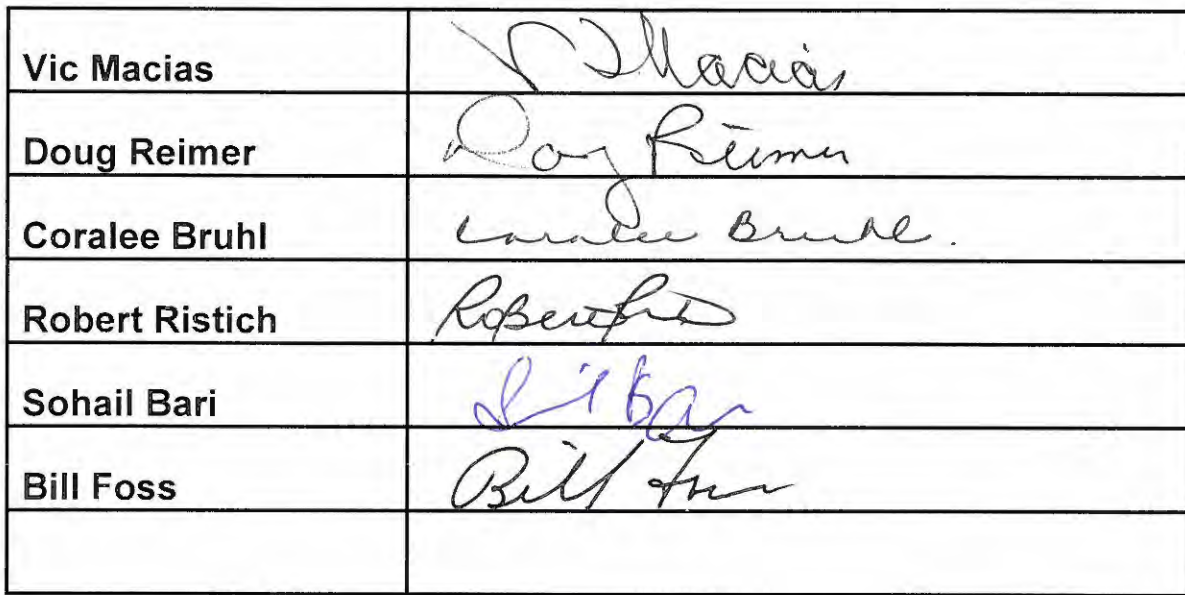 Vic Macias
V Macias
Doug Reimer
Doug Reimer
Coralee Bruhl
Coralee Bruhl.
Robert Ristich
Robert
Sohail Bari
Bill Foss
Bill Foss